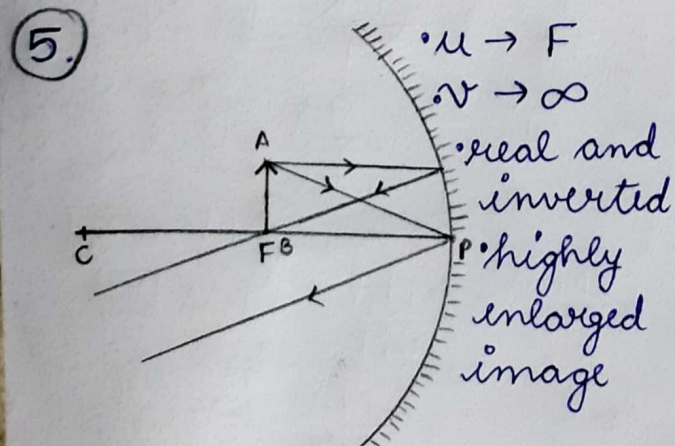 5.
•u → F
•v → ∞
•real and
inverted
•highly
enlarged
image
A
C
F B
P